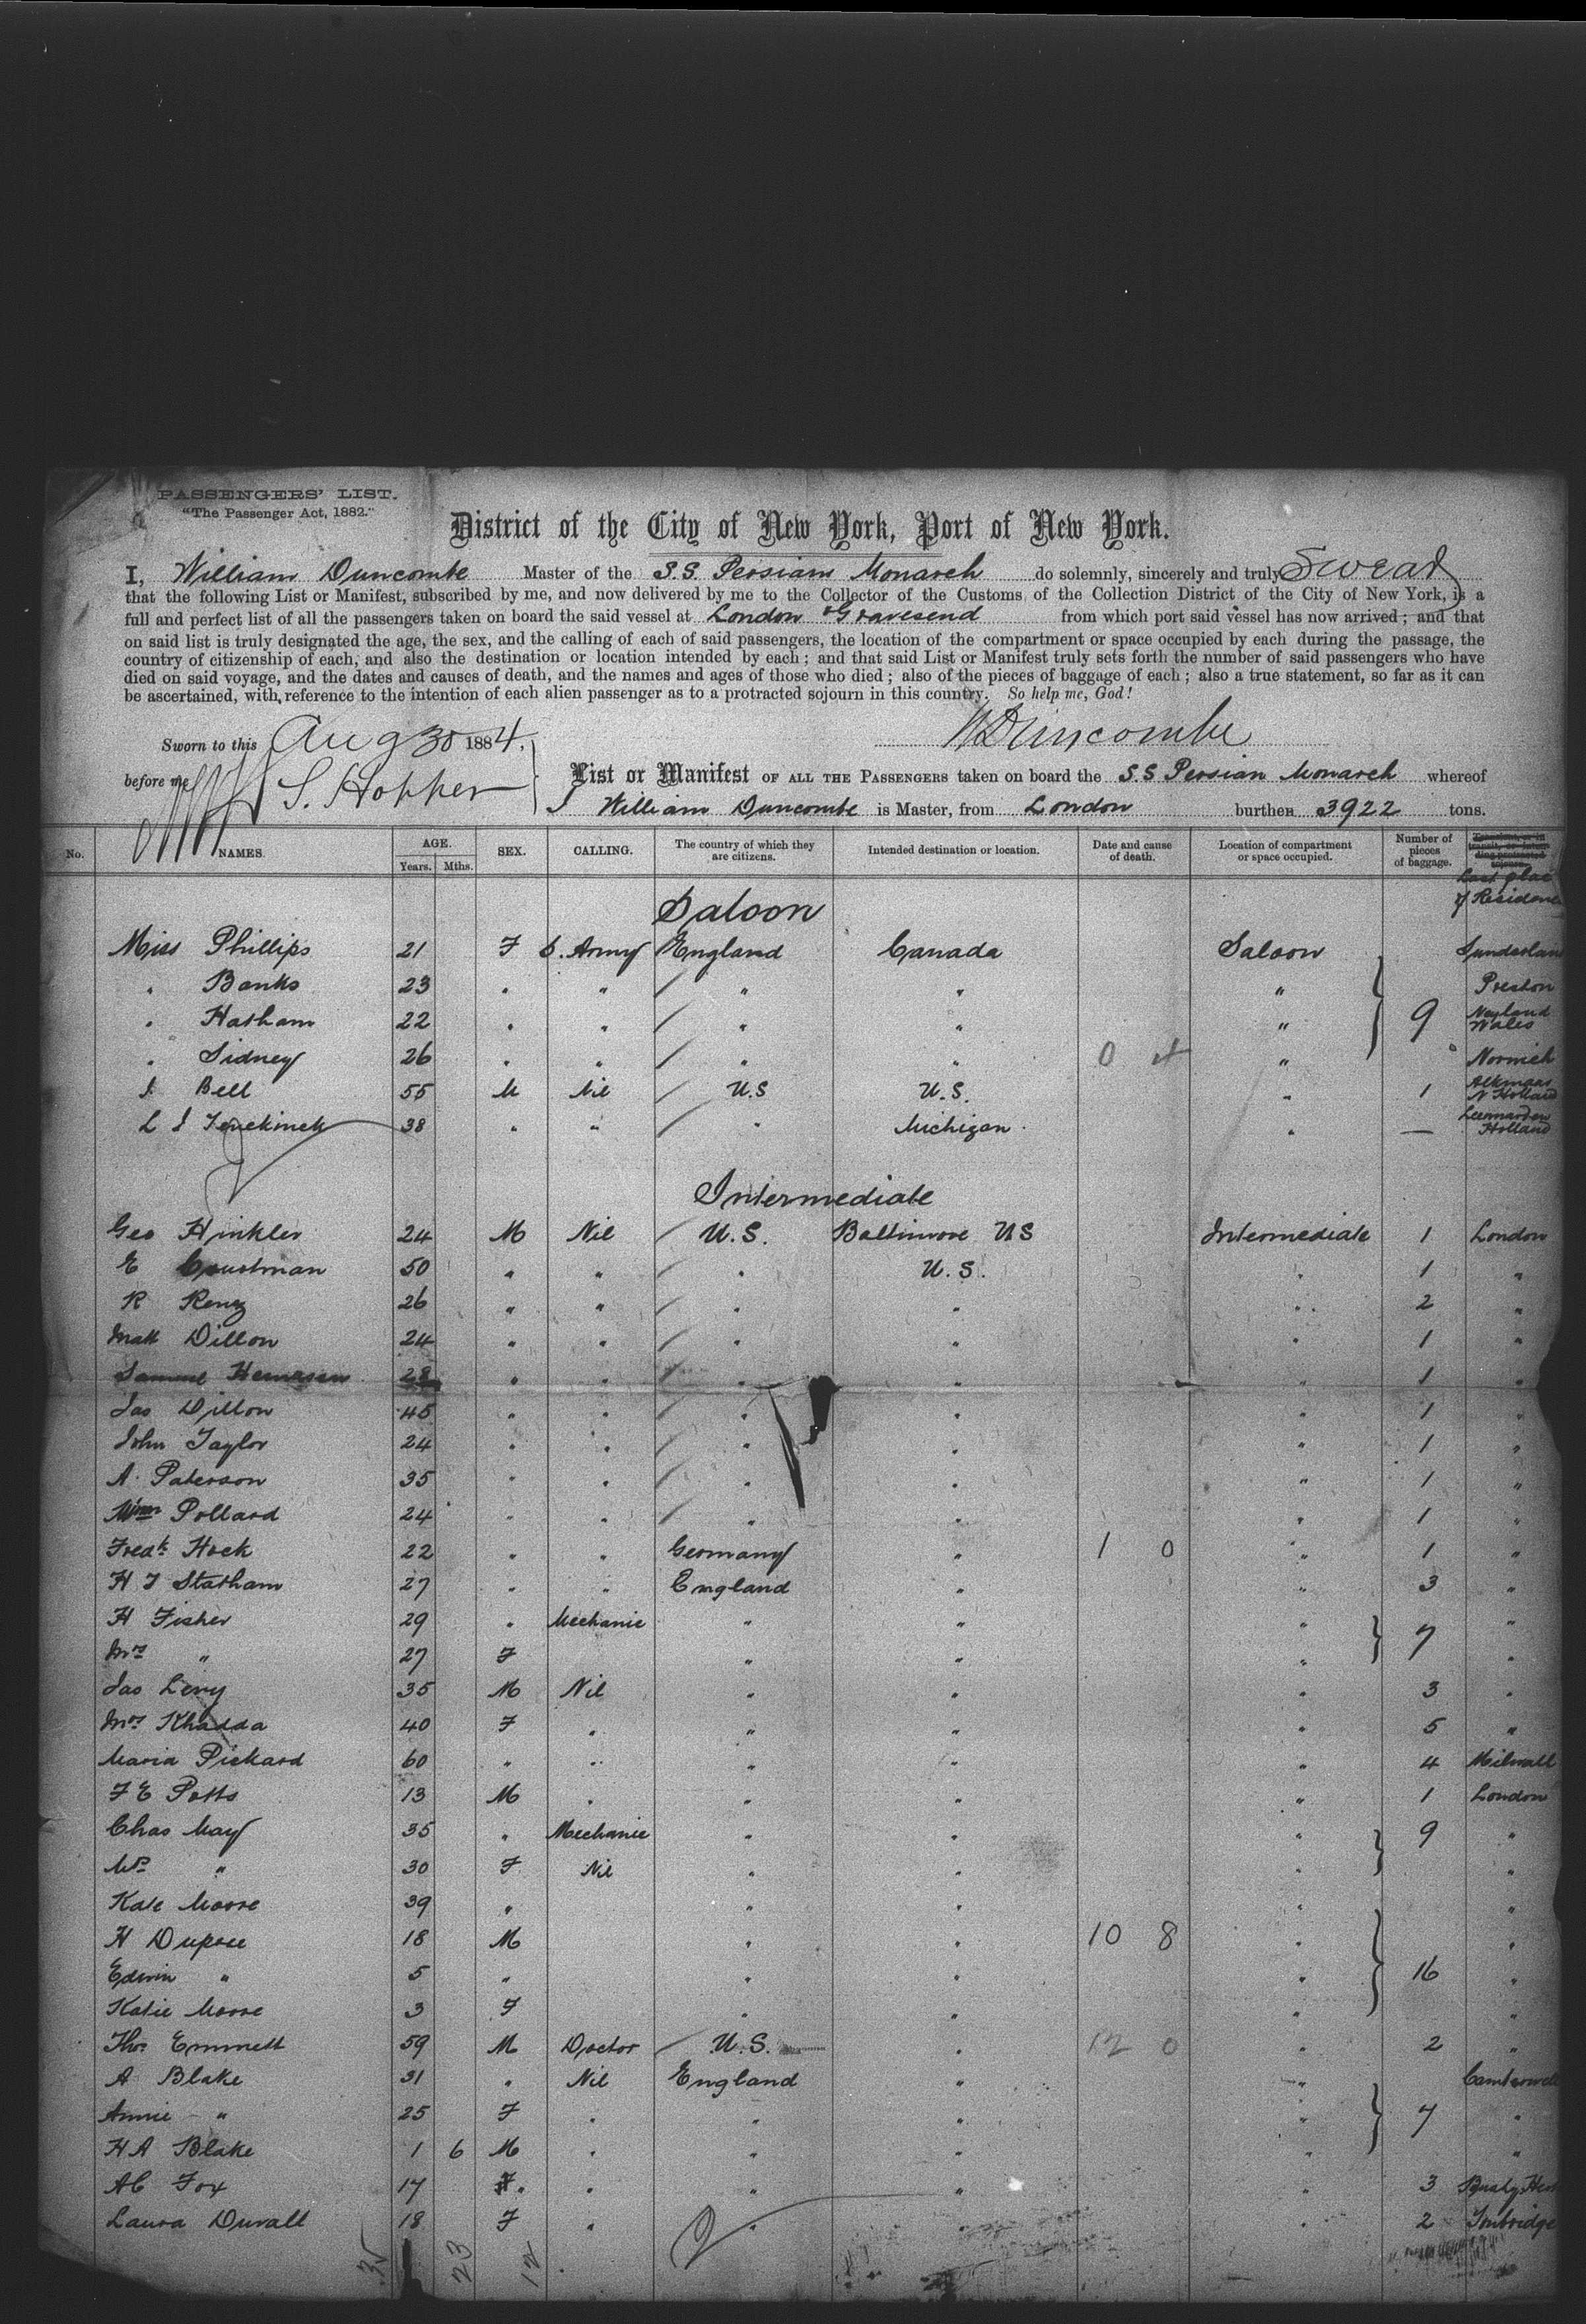 PASSENGERS' LIST.
"The Passenger Act, 1882."
District of the City of New York, Port of New York.
I, William Duncombe Master of the S.S. Persian Monarch do solemnly, sincerely and truly Swear
that the following List or Manifest, subscribed by me, and now delivered by me to the Collector of the Customs of the Collection District of the City of New York, is a
full and perfect list of all the passengers taken on board the said vessel at London & Gravesend from which port said vessel has now arrived; and that
on said list is truly designated the age, the sex, and the calling of each of said passengers, the location of the compartment or space occupied by each during the passage, the
country of citizenship of each, and also the destination or location intended by each; and that said List or Manifest truly sets forth the number of said passengers who have
died on said voyage, and the dates and causes of death, and the names and ages of those who died; also of the pieces of baggage of each; also a true statement, so far as it can
be ascertained, with reference to the intention of each alien passenger as to a protracted sojourn in this country. So help me, God!
Sworn to this Aug 30 1884. W Duncombe
before me S. Hopper
List or Manifest OF ALL THE PASSENGERS taken on board the S.S Persian Monarch whereof
William Duncombe is Master, from London burthen 3922 tons.
No. NAMES. AGE. Years. Mths. SEX. CALLING. The country of which they are citizens. Intended destination or location. Date and cause of death. Location of compartment or space occupied. Number of pieces of baggage. Last place of Residence
Saloon
Miss Phillips 21 F S. Army England Canada Saloon Sunderland
" Banks 23 " " " " " Preston
" Hatham 22 " " " " " 9 Neyland Wales
" Sidney 26 " " " " 0 " Norwich
J. Bell 55 M Nil U.S U.S. " 1 Alkmaar N Holland
L J 38 " " " Michigan " — Holland
Intermediate
Geo Hinkler 24 M Nil U.S. Baltimore US Intermediate 1 London
E 50 " " " U.S. " 1 "
R Renz 26 " " " " " 2 "
Matt Dillon 24 " " " " " 1 "
Samuel 28 " " " " " 1 "
Jas Dillon 45 " " " " " 1 "
John Taylor 24 " " " " " 1 "
A. Paterson 35 " " " " " 1 "
Pollard 24 " " " " " 1 "
Fredk Hock 22 " " Germany " 1 0 " 1 "
H J Statham 27 " " England " " 3 "
H Fisher 29 " Mechanic " " " 7 "
Mrs " 27 F " " " "
Jas Levy 35 M Nil " " " 3 "
Mrs Khadda 40 F " " " " 5 "
Maria Pickard 60 " " " " " 4 Milwall
F E Potts 13 M " " " " 1 London
Chas May 35 " Mechanic " " " 9 "
Mrs " 30 F Nil " " " "
Kate Moore 39 " " " " "
H Dupree 18 M " " 10 8 " "
Edwin " 5 " " " " 16 "
Katie Moore 3 F " " " "
Thos Emmett 59 M Doctor U.S. " 12 0 " 2 "
A Blake 31 " Nil England " " Camberwell
Annie " 25 F " " " " 7 "
H A Blake 1 6 M " " " " "
A C Fox 17 F. " " " " 3
Laura Duvall 18 F " " " " 2 Tonbridge
35 23 12